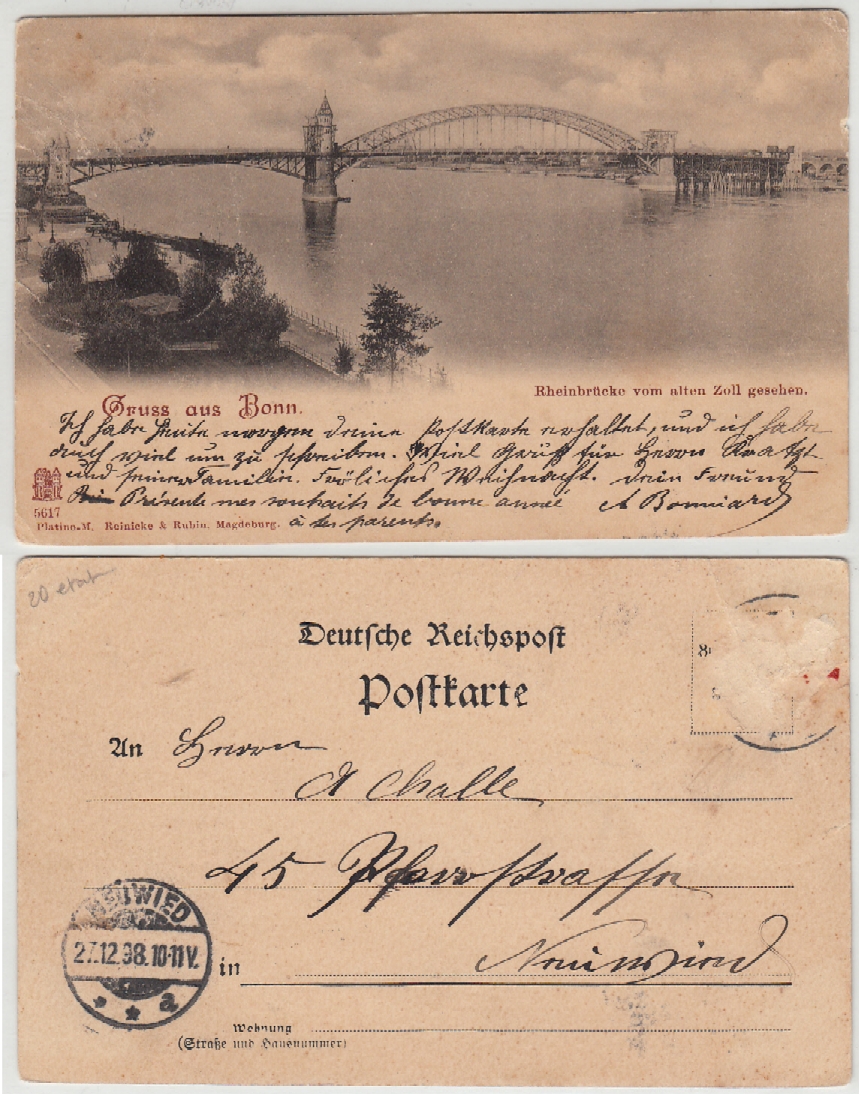 Rheinbrücke vom alten Zoll gesehen.
Gruss aus Bonn.
Ich habe heute morgen deine Postkarte erhaltet, und ich habe
auch viel um zu schreiben. Viel Grüß für Herrn Kratzt
und seiner Familien. Fröliches Weihnacht. dein Freund
Présente mes souhaits de bonne année A Bonniard
à tes parents.
5617
Platino-M. Reinicke & Rubin, Magdeburg.
20 etat
Deutsche Reichspost
Postkarte
An Herrn
A Challe
45 Pfarrstrasse
in Neuwied
NEUWIED
27.12.98.10-11V.
a
Wohnung
(Straße und Hausnummer)